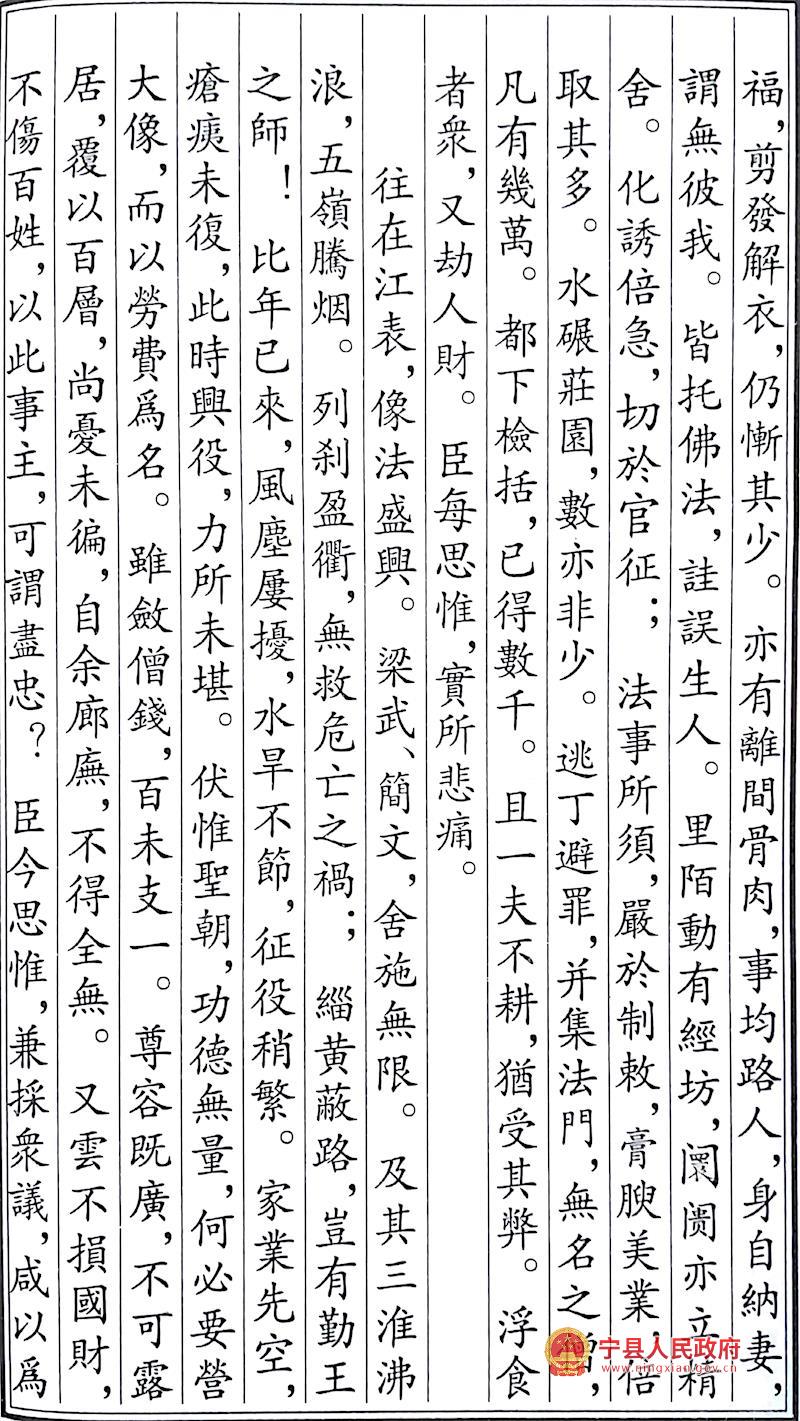 福，剪發解衣，仍慚其少。亦有離間骨肉，事均路人，身自納妻，
謂無彼我。皆托佛法，詿誤生人。里陌動有經坊，阛阓亦立精
舍。化誘倍急，切於官征；法事所須，嚴於制敕，膏腴美業，倍
取其多。水碾莊園，數亦非少。逃丁避罪，并集法門，無名之僧，
凡有幾萬。都下檢括，已得數千。且一夫不耕，猶受其弊。浮食
者衆，又劫人財。臣每思惟，實所悲痛。
往在江表，像法盛興。梁武、簡文，舍施無限。及其三淮沸
浪，五嶺騰烟。列刹盈衢，無救危亡之禍；緇黄蔽路，豈有勤王
之師！比年已來，風塵屢擾，水旱不節，征役稍繁。家業先空，
瘡痍未復，此時興役，力所未堪。伏惟聖朝，功德無量，何必要營
大像，而以勞費爲名。雖斂僧錢，百未支一。尊容既廣，不可露
居，覆以百層，尚憂未徧，自余廊廡，不得全無。又雲不損國財，
不傷百姓，以此事主，可謂盡忠？臣今思惟，兼採衆議，咸以爲
宁县人民政府
www.ningxian.gov.cn